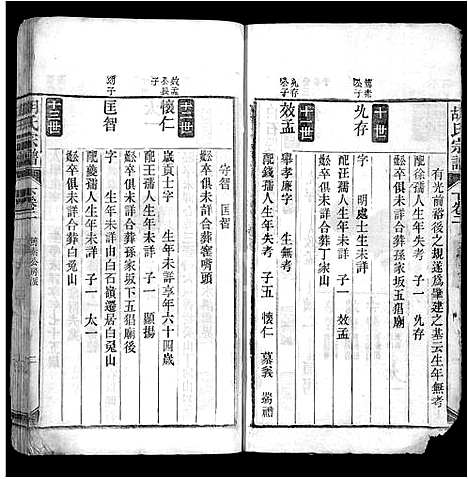 胡氏宗譜
下卷二
有光前裕後之規遂為肇建之基云生年無考
配徐孺人生年失考 子一 允存
娶卒俱未詳合葬
十世
允存
公子
字 明處士生未詳
配汪孺人生年未詳 子一 效孟
娶卒俱未詳合葬丁家山
十一世
效孟
允存公子
舉孝廉字 生無考
配錢孺人生年失考 子五 懷仁 慕義 崇禮
守智 匡智
娶卒俱未詳合葬窑嘴頭
十二世
懷仁
效孟公長子
歲貢士字 生年未詳壽年六十四歲
配王孺人生年未詳 子一 顯揚
娶卒俱未詳合葬孫家坂下五猖廟後
匡智
幼子
字 生年未詳由白石嶺遷居白兎山
配孺人生年未詳 子一 太一
娶卒俱未詳合葬白兎山
十三世
胡氏宗譜
下卷二